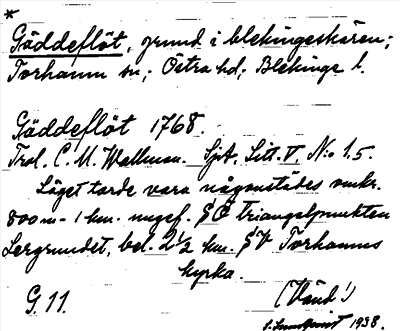 *
Gäddeflöt, grund i blekingeskären;
Torhamn sn.; Östra hd.; Blekinge l.
Gäddeflöt 1768.
Trol. C. M. Wallman. Sjök. Litt. V, No 15.
Läget torde vara någonstädes omkr.
800 m - 1 km. ungef. SO triangelpunkten
Lergrundet, bel. 2 1/2 km. SV Torhamns
kyrka.
G. 11.
(Vänd!)
1938.